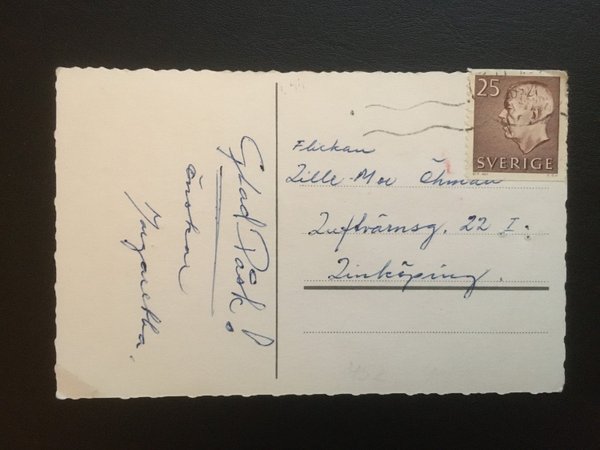 Glad Påsk!
önskar
Margaretha.
25
SVERIGE
Flickan
Lille-Moe Öhman
Luftvärnsg. 22 I.
Linköping.